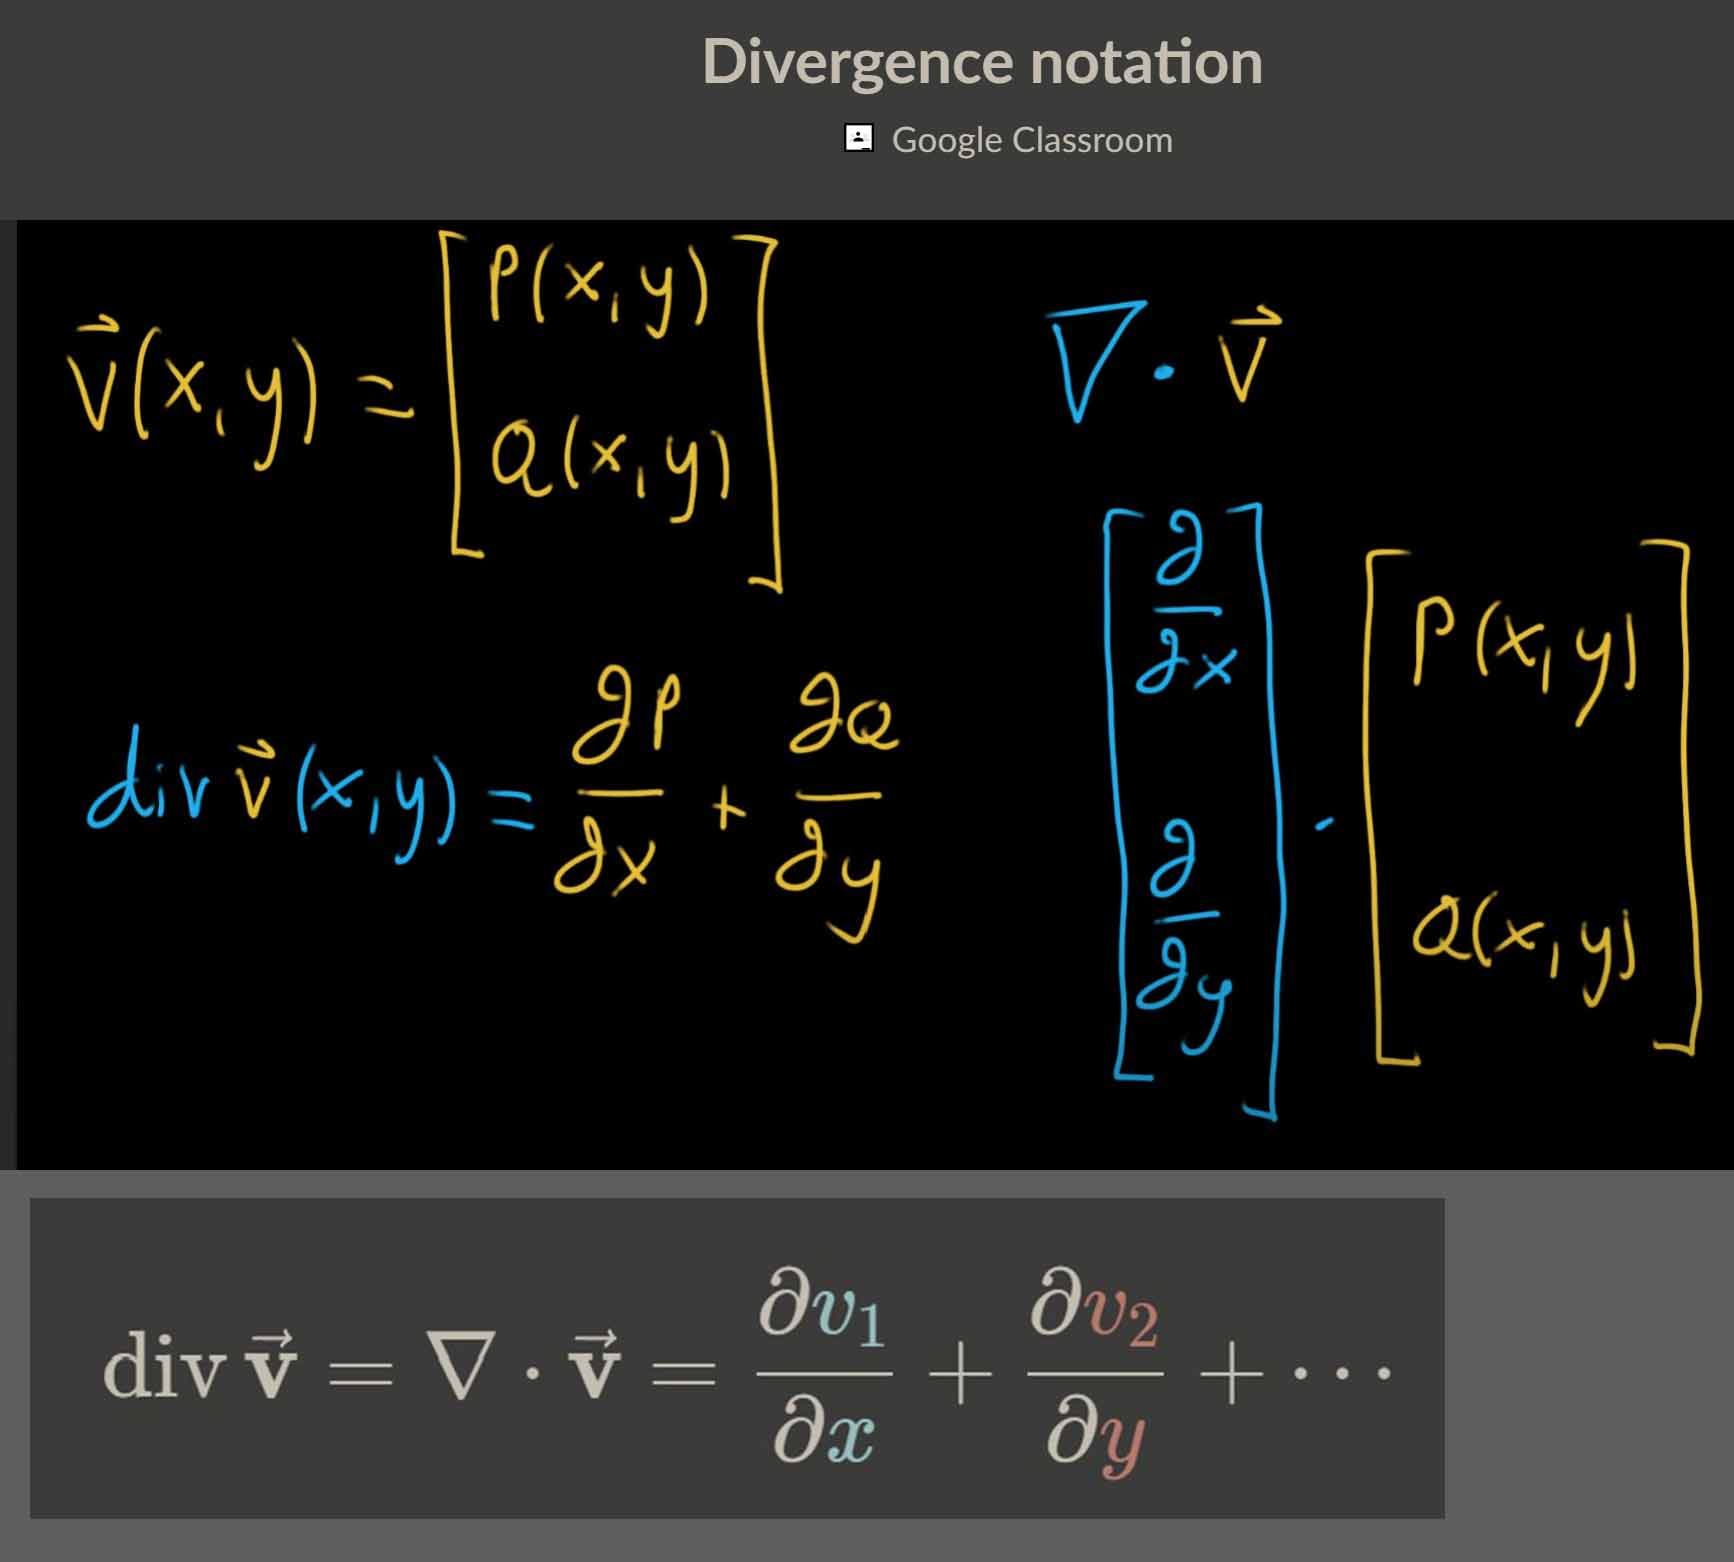 Divergence notation
Google Classroom
v⃗(x,y) = [P(x,y)
Q(x,y)]
∇ · v⃗
div v⃗(x,y) = ∂P/∂x + ∂Q/∂y
[∂/∂x
∂/∂y] · [P(x,y)
Q(x,y)]
div v⃗ = ∇ · v⃗ = ∂v₁/∂x + ∂v₂/∂y + ⋯